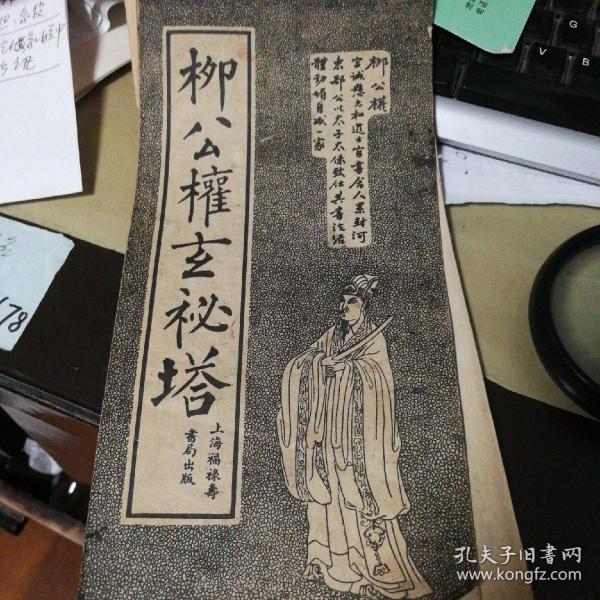 柳公權玄祕塔
上海福祿壽
書局出版
柳公權
字誠懸元和進士官書舍人累封河
東郡公以太子太保致仕其書法結
體勁媚自成一家
178
孔夫子旧书网
www.kongfz.com